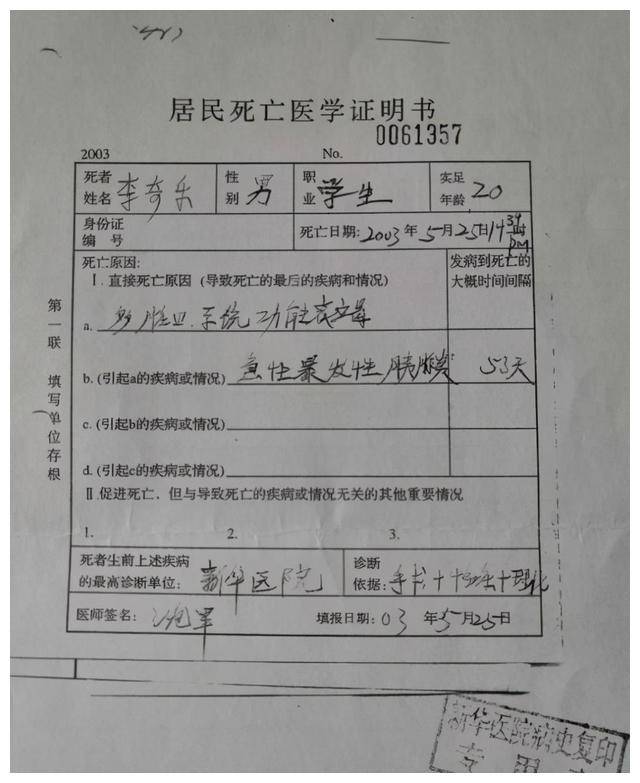 居民死亡医学证明书
0061357
2003 No.
死者姓名 李奇乐 性别 男 职业 学生 实足年龄 20
身份证编号 死亡日期:2003年5月25日14 39 PM
死亡原因: 发病到死亡的大概时间间隔
Ⅰ.直接死亡原因 (导致死亡的最后的疾病和情况)
a. 系统功能衰竭
b. (引起a的疾病或情况) 急性暴发性胰腺炎 53天
c. (引起b的疾病或情况)
d. (引起c的疾病或情况)
Ⅱ.促进死亡、但与导致死亡的疾病或情况无关的其他重要情况
1. 2. 3.
死者生前上述疾病的最高诊断单位: 新华医院 诊断依据: 手术+ +理化
医师签名: 填报日期: 03 年5月25日
第一联 填写单位存根
新华医院病史复印
专用